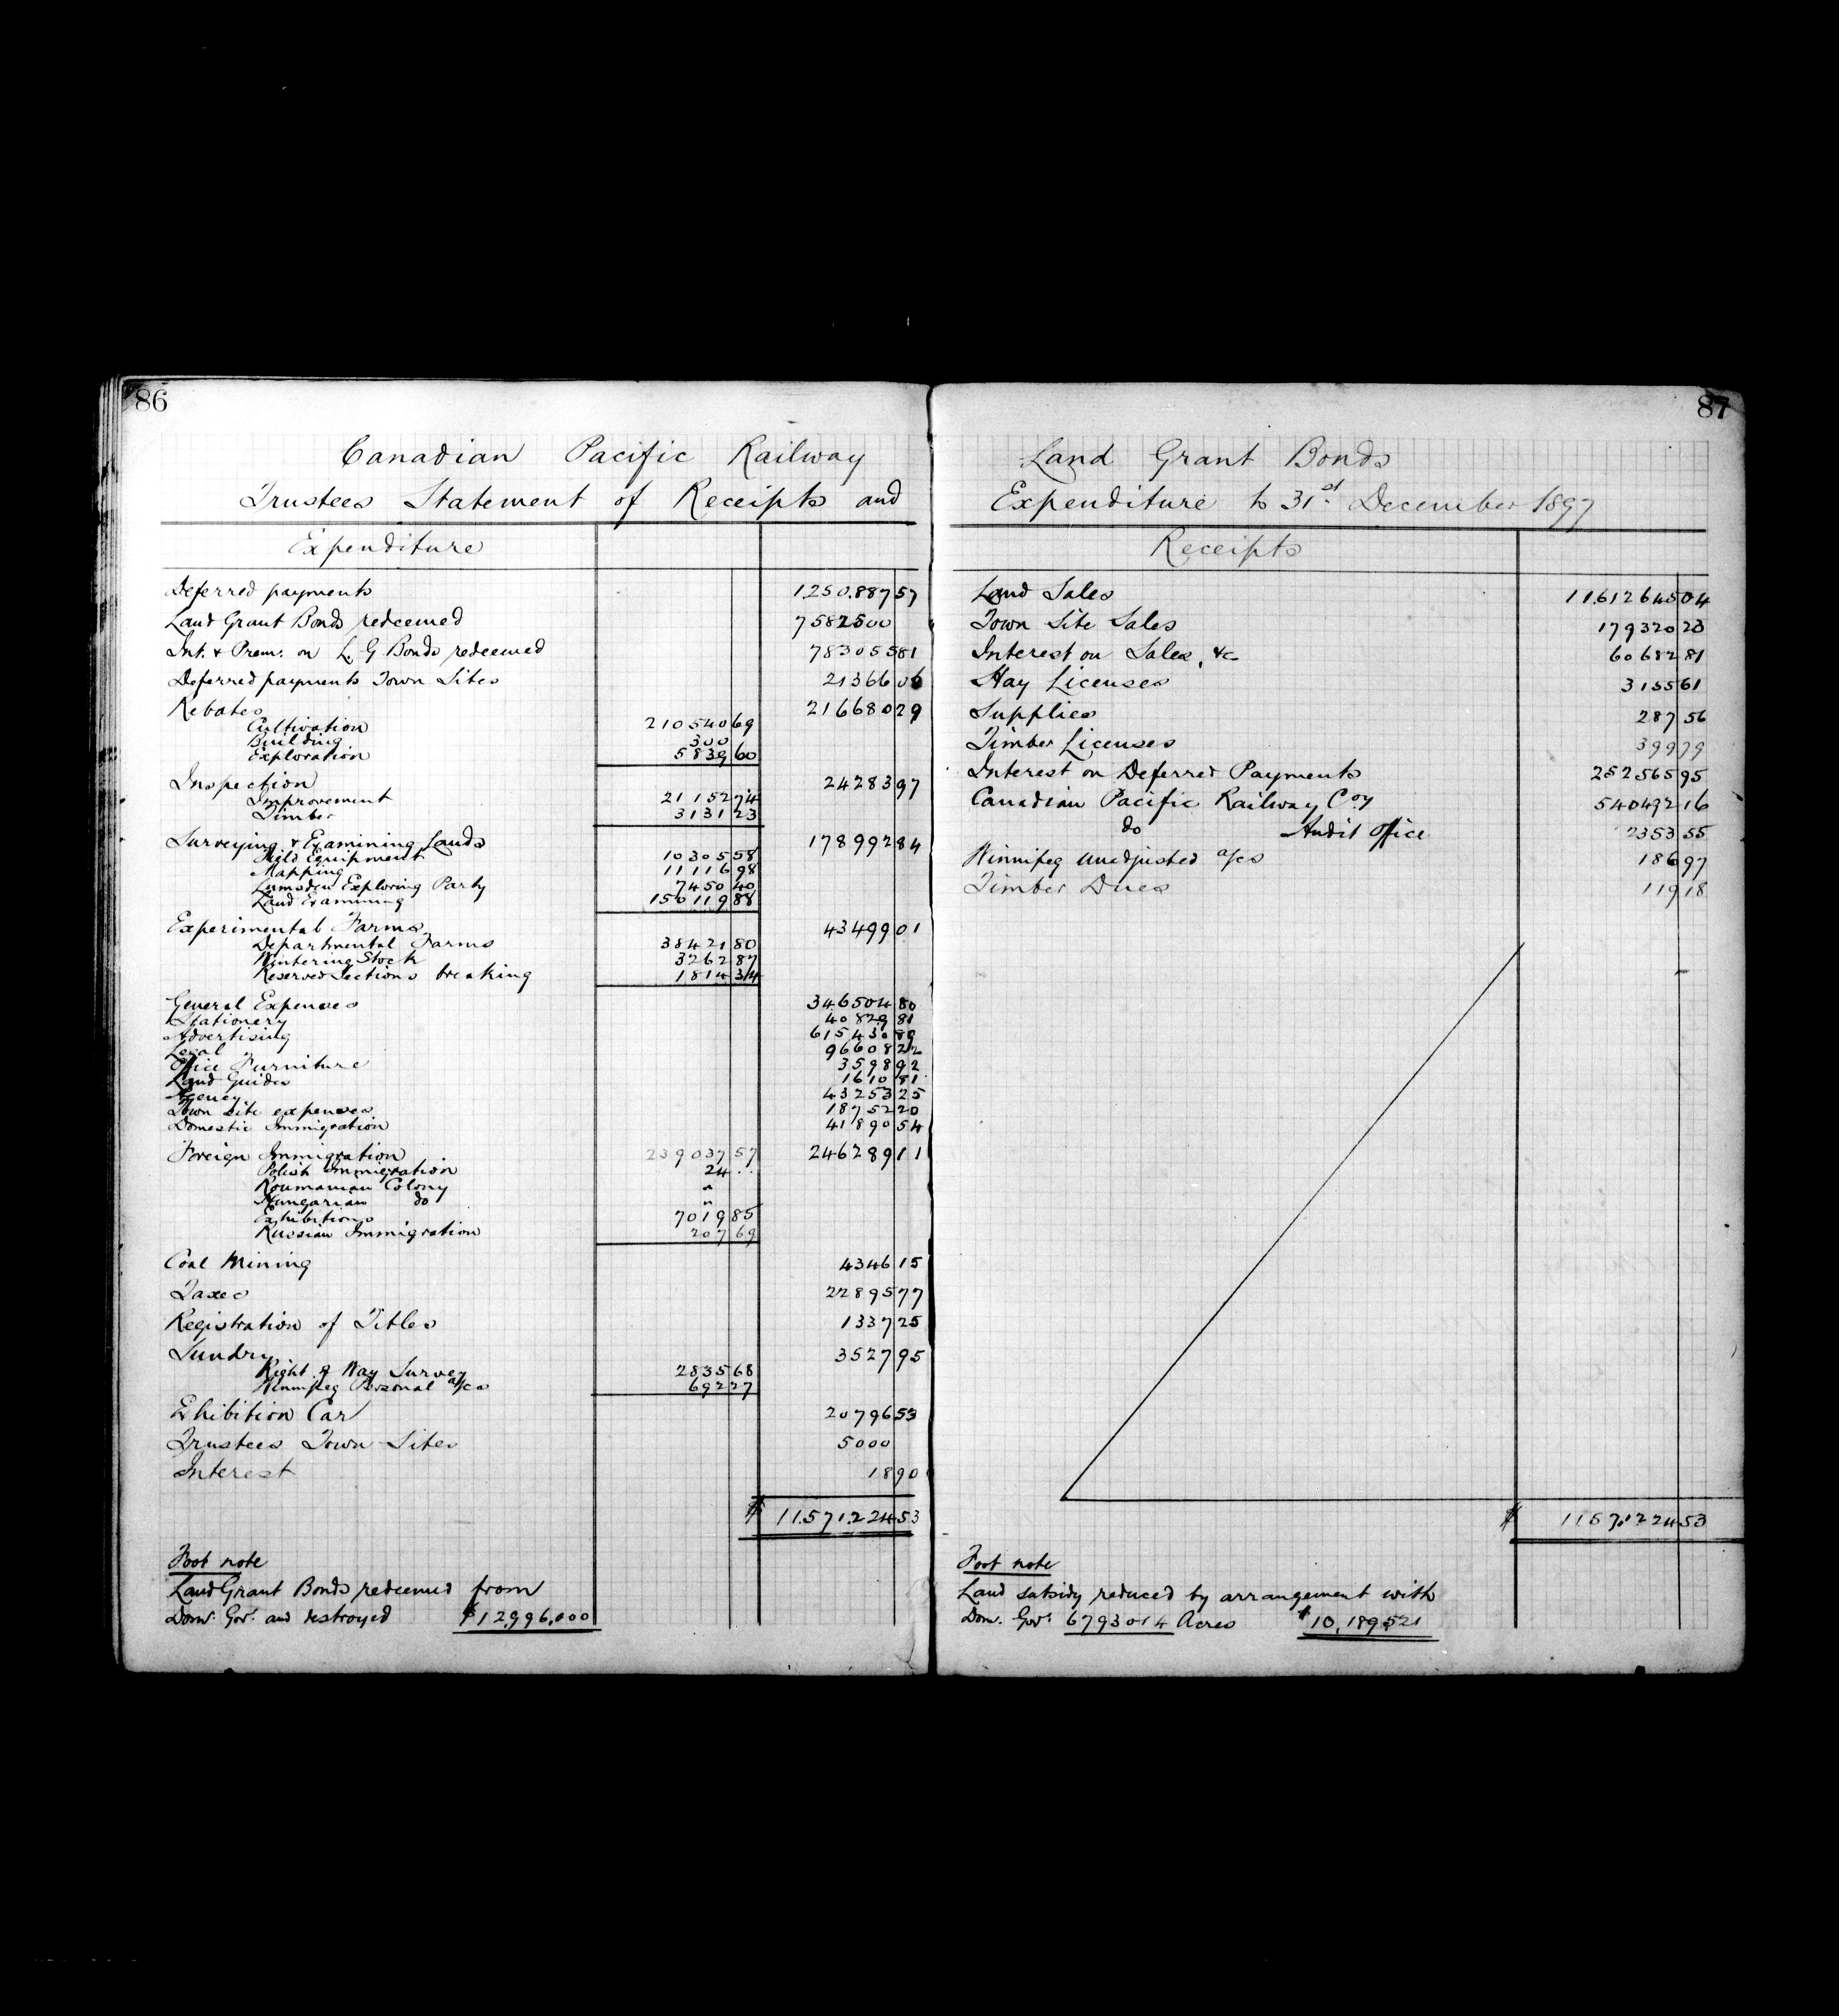 86
Canadian Pacific Railway
Trustees Statement of Receipts and
Expenditure
Deferred payments 1,250,887 57
Land Grant Bonds redeemed 7582500
Int. & Prem. on L. G Bonds redeemed 783055 81
Deferred payments Town Sites 21366 06
Rebates 216680 29
Cultivation 210540 69
Building 300
Exploration 5839 60
Inspection 24283 97
Improvement 21152 74
Timber 3131 23
Surveying & Examining Lands 178992 84
Field Equipment 10305 58
Mapping 11116 98
Lumsden Exploring Party 7450 40
Land Examining 150119 88
Experimental Farms 43499 01
Departmental Farms 38421 80
Wintering Stock 3262 87
Reserved Sections breaking 1814 34
General Expenses 346504 80
Stationery 40829 81
Advertising 615430 89
Legal 96608 22
Office Furniture 3598 92
Land Guides 1610 81
Agency 43253 25
Town Site expenses 18752 20
Domestic Immigration 41890 54
Foreign Immigration 239037 57 246289 11
Polish Immigration 24 ..
Roumanian Colony "
Hungarian do "
Exhibitions 7019 85
Russian Immigration 207 69
Coal Mining 4346 15
Taxes 22895 77
Registration of Titles 1337 25
Sundry 3527 95
Right of Way Survey 2835 68
Winnipeg Personal a/cs 692 27
Exhibition Car 20796 53
Trustees Town Sites 5000
Interest 18 90
$ 11,571,224 53
Foot note
Land Grant Bonds redeemed from
Dom. Gov. and destroyed $12,996,000
87
Land Grant Bonds
Expenditure to 31st December 1897
Receipts
Land Sales 11,612645 04
Town Site Sales 179320 23
Interest on Sales, &c 60682 81
Hay Licenses 3155 61
Supplies 287 56
Timber Licenses 399 79
Interest on Deferred Payments 252565 95
Canadian Pacific Railway Coy 540492 16
do Audit Office 2353 55
Winnipeg Unadjusted a/cs 186 97
Timber Dues 119 18
$ 11,571,224 53
Foot note
Land subsidy reduced by arrangement with
Dom. Govt. 6793014 Acres $10,189,521